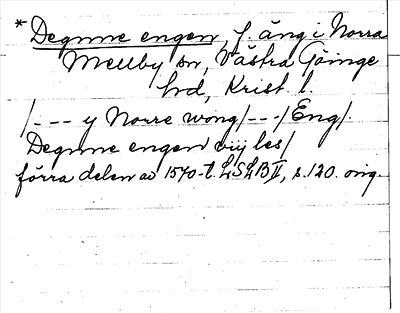 * Degnne engen, f. äng i Norra
Mellby sn, Västra Göinge
hd, Krist. l.
/- - - y Norre wong/- - -/Eng/.
Degnne engen viij les/
förra delen av 1570-t. LSLB II, s. 120. orig.